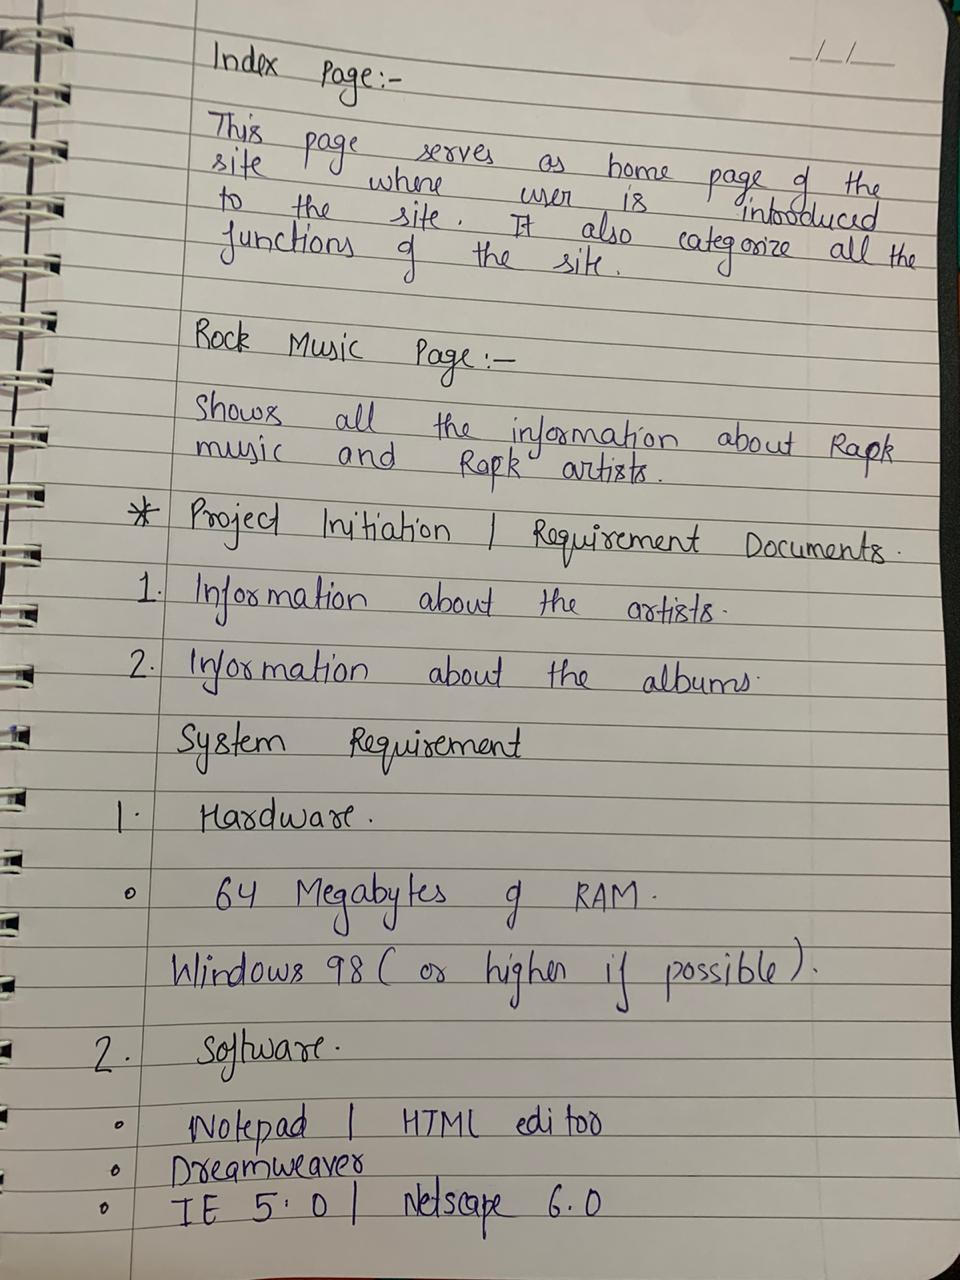 _/_/__
Index Page:-
This page serves as home page of the
site where user is introduced
to the site. It also categorize all the
functions of the site.
Rock Music Page:-
Shows all the information about Rapk
music and Rapk artists.
* Project Initiation | Requirement Documents.
1. Information about the artists.
2. Information about the albums.
System Requirement
1. Hardware.
o 64 Megabytes of RAM.
Windows 98 (or higher if possible).
2. Software.
o Notepad | HTML editor
o Dreamweaver
o IE 5.0 | Netscape 6.0